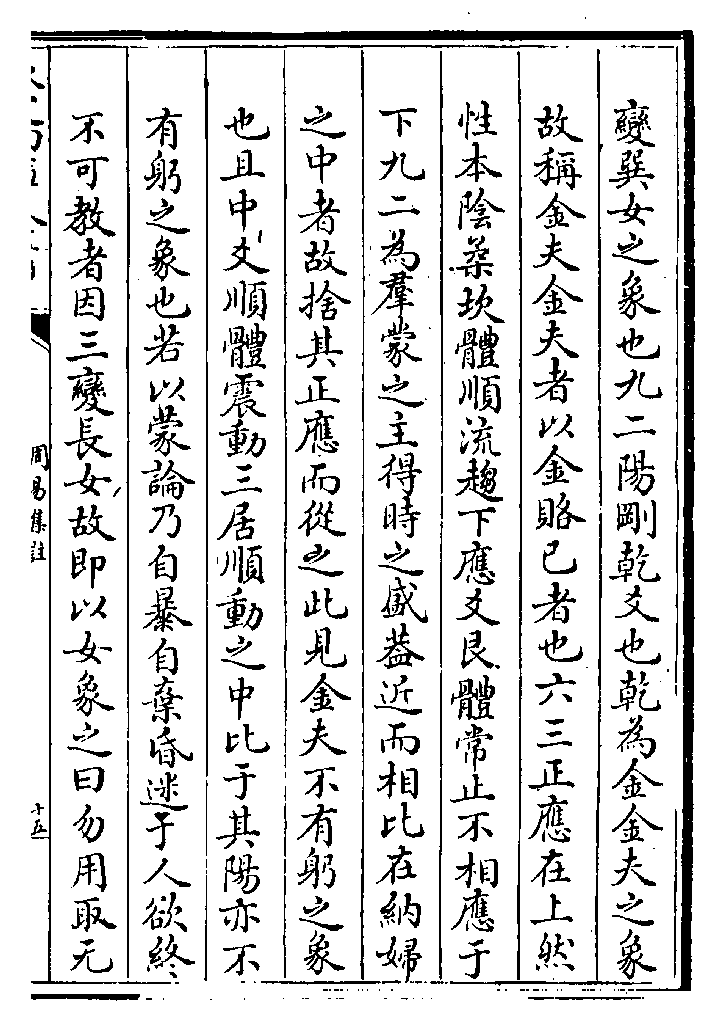 變巽女之象也九二陽剛乾爻也乾為金金夫之象
故稱金夫金夫者以金賂己者也六三正應在上然
性本陰柔坎體順流趨下應爻艮體常止不相應于
下九二為羣蒙之主得時之盛蓋近而相比在納婦
之中者故捨其正應而從之此見金夫不有躬之象
也且中爻順體震動三居順動之中比于其陽亦不
有躬之象也若以蒙論乃自暴自棄昏迷于人欲終
不可教者因三變長女故即以女象之曰勿用取无
周易集註
十五